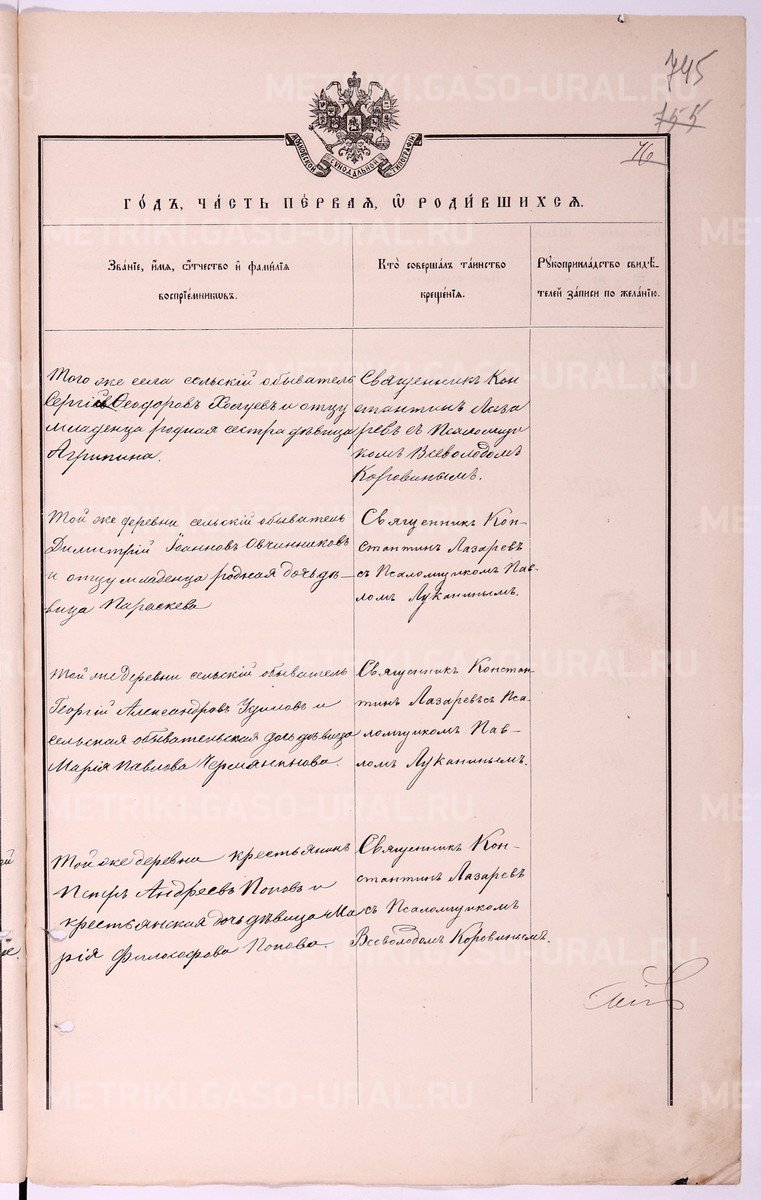 745
755
76
МОСКОВСКОЙ СѴНОДАЛЬНОЙ ТИПОГРАФІИ
ГО́ДЪ, ЧА́СТЬ ПЕ́РВАЯ, Ѡ РОДИ́ВШИХСЯ.
Зва́ніе, и́мя, ѻ҆́тчество и҆ фами́лїѧ
воспрїе́мникѡвъ.
Кто̀ соверша́лъ та́инство
креще́нїѧ.
Рꙋкоприкла́дство свидѣ́-
телей за́писи по жела́нїю.
Того же села сельскій обыватель
Сергій Ѳеодоровъ Холуевъ и отцу
младенца родная сестра дѣвица
Агрипина.
Священникъ Кон
стантинъ Лаза
ревъ съ Псаломщи
комъ Всеволодомъ
Коровинымъ.
Той же деревни сельскій обыватель
Димитрій Іоанновъ Овчинниковъ
и отцу младенца родная дочь дѣ-
вица Параскева
Священникъ Кон-
стантинъ Лазаревъ
съ Псаломщикомъ Пав-
ломъ Луканинымъ.
Той же деревни сельскій обыватель
Георгій Александровъ и
сельская обывательская дочь дѣвица
Марія Павлова
Священникъ Констан-
тинъ Лазаревъ съ Пса-
ломщикомъ Пав-
ломъ Луканинымъ.
Той же деревни крестьянинъ
Петръ Андреевъ Поповъ и
крестьянская дочь дѣвица Ма
рія Философова Попова
Священникъ Кон-
стантинъ Лазаревъ
съ Псаломщикомъ
Всеволодомъ Коровинымъ.
METRIKI.GASO-URAL.RU